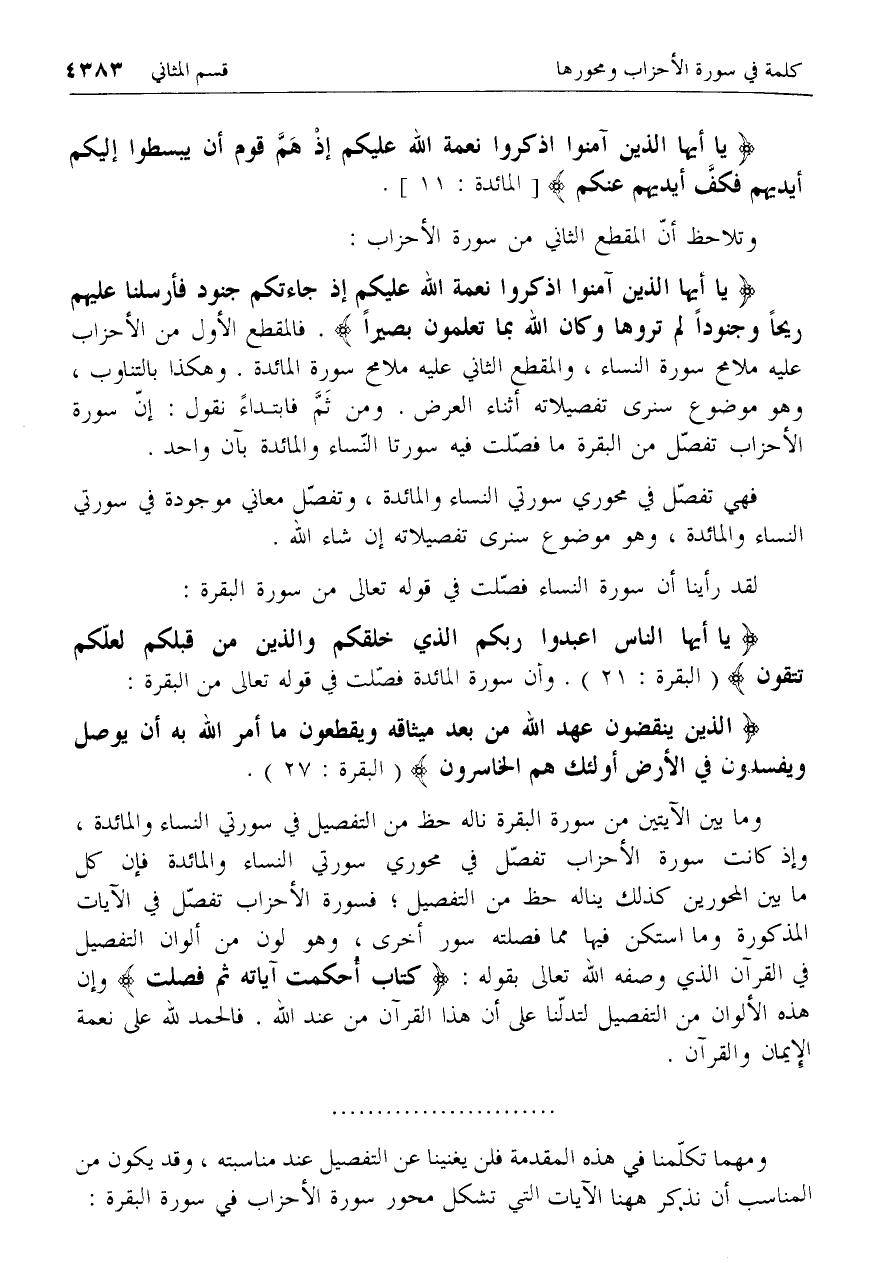 كلمة في سورة الأحزاب ومحورها قسم المثاني ٤٣٨٣
﴿ يا أيها الذين آمنوا اذكروا نعمة الله عليكم إذْ هَمَّ قوم أن يبسطوا إليكم
أيديهم فكفَّ أيديهم عنكم ﴾ [ المائدة : ١١ ] .
وتلاحظ أنّ المقطع الثاني من سورة الأحزاب :
﴿ يا أيها الذين آمنوا اذكروا نعمة الله عليكم إذ جاءتكم جنود فأرسلنا عليهم
ريحاً وجنوداً لم تروها وكان الله بما تعلمون بصيراً ﴾ . فالمقطع الأول من الأحزاب
عليه ملامح سورة النساء ، والمقطع الثاني عليه ملامح سورة المائدة . وهكذا بالتناوب ،
وهو موضوع سنرى تفصيلاته أثناء العرض . ومن ثَمَّ فابتداءً نقول : إنّ سورة
الأحزاب تفصّل من البقرة ما فصّلت فيه سورتا النّساء والمائدة بآن واحد .
فهي تفصّل في محوري سورتي النساء والمائدة ، وتفصّل معاني موجودة في سورتي
النساء والمائدة ، وهو موضوع سنرى تفصيلاته إن شاء الله .
لقد رأينا أن سورة النساء فصّلت في قوله تعالى من سورة البقرة :
﴿ يا أيها الناس اعبدوا ربكم الذي خلقكم والذين من قبلكم لعلّكم
تتقون ﴾ ( البقرة : ٢١ ) . وأن سورة المائدة فصّلت في قوله تعالى من البقرة :
﴿ الذين ينقضون عهد الله من بعد ميثاقه ويقطعون ما أمر الله به أن يوصل
ويفسدون في الأرض أولئك هم الخاسرون ﴾ ( البقرة : ٢٧ ) .
وما بين الآيتين من سورة البقرة ناله حظ من التفصيل في سورتي النساء والمائدة ،
وإذ كانت سورة الأحزاب تفصّل في محوري سورتي النساء والمائدة فإن كل
ما بين المحورين كذلك يناله حظ من التفصيل ؛ فسورة الأحزاب تفصّل في الآيات
المذكورة وما استكن فيها مما فصلته سور أخرى ، وهو لون من ألوان التفصيل
في القرآن الذي وصفه الله تعالى بقوله : ﴿ كتاب أُحكمت آياته ثم فصلت ﴾ وإن
هذه الألوان من التفصيل لتدلّنا على أن هذا القرآن من عند الله . فالحمد لله على نعمة
الإيمان والقرآن .
........................
ومهما تكلّمنا في هذه المقدمة فلن يغنينا عن التفصيل عند مناسبته ، وقد يكون من
المناسب أن نذكر ههنا الآيات التي تشكل محور سورة الأحزاب في سورة البقرة :